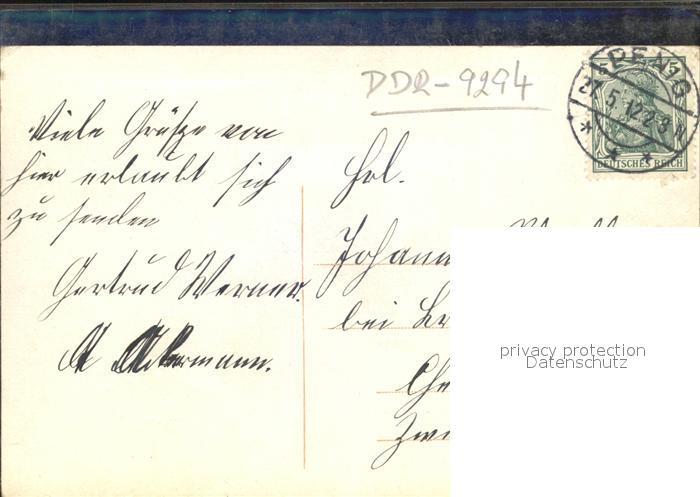 DDR-9294
PENIG
27.5.12.2-3N
5 5
DEUTSCHES REICH
Viele Grüße von
hier erlaubt sich
zu senden
Gertrud Werner.
A Ackermann.
Frl.
bei
privacy protection
Datenschutz